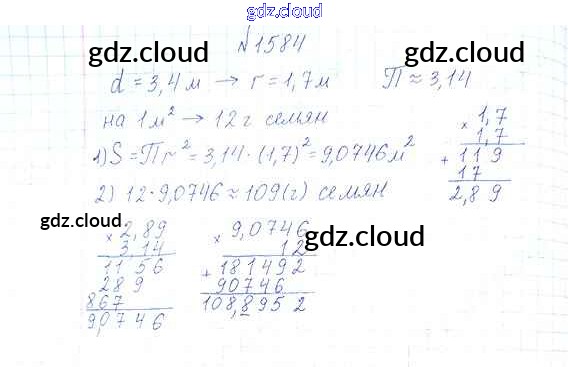 gdz.cloud
№1584
gdz.cloud gdz.cloud
d = 3,4 м → r = 1,7 м П ≈ 3,14
на 1 м² → 12 г семян
1) S = Пr² = 3,14 · (1,7)² = 9,0746 м²
2) 12 · 9,0746 ≈ 109 (г) семян
× 1,7
1,7
+ 119
17
2,89
gdz.cloud
× 2,89
3,14
1156
289
867
9,0746
gdz.cloud
× 9,0746
12
+ 181492
90746
108,8952